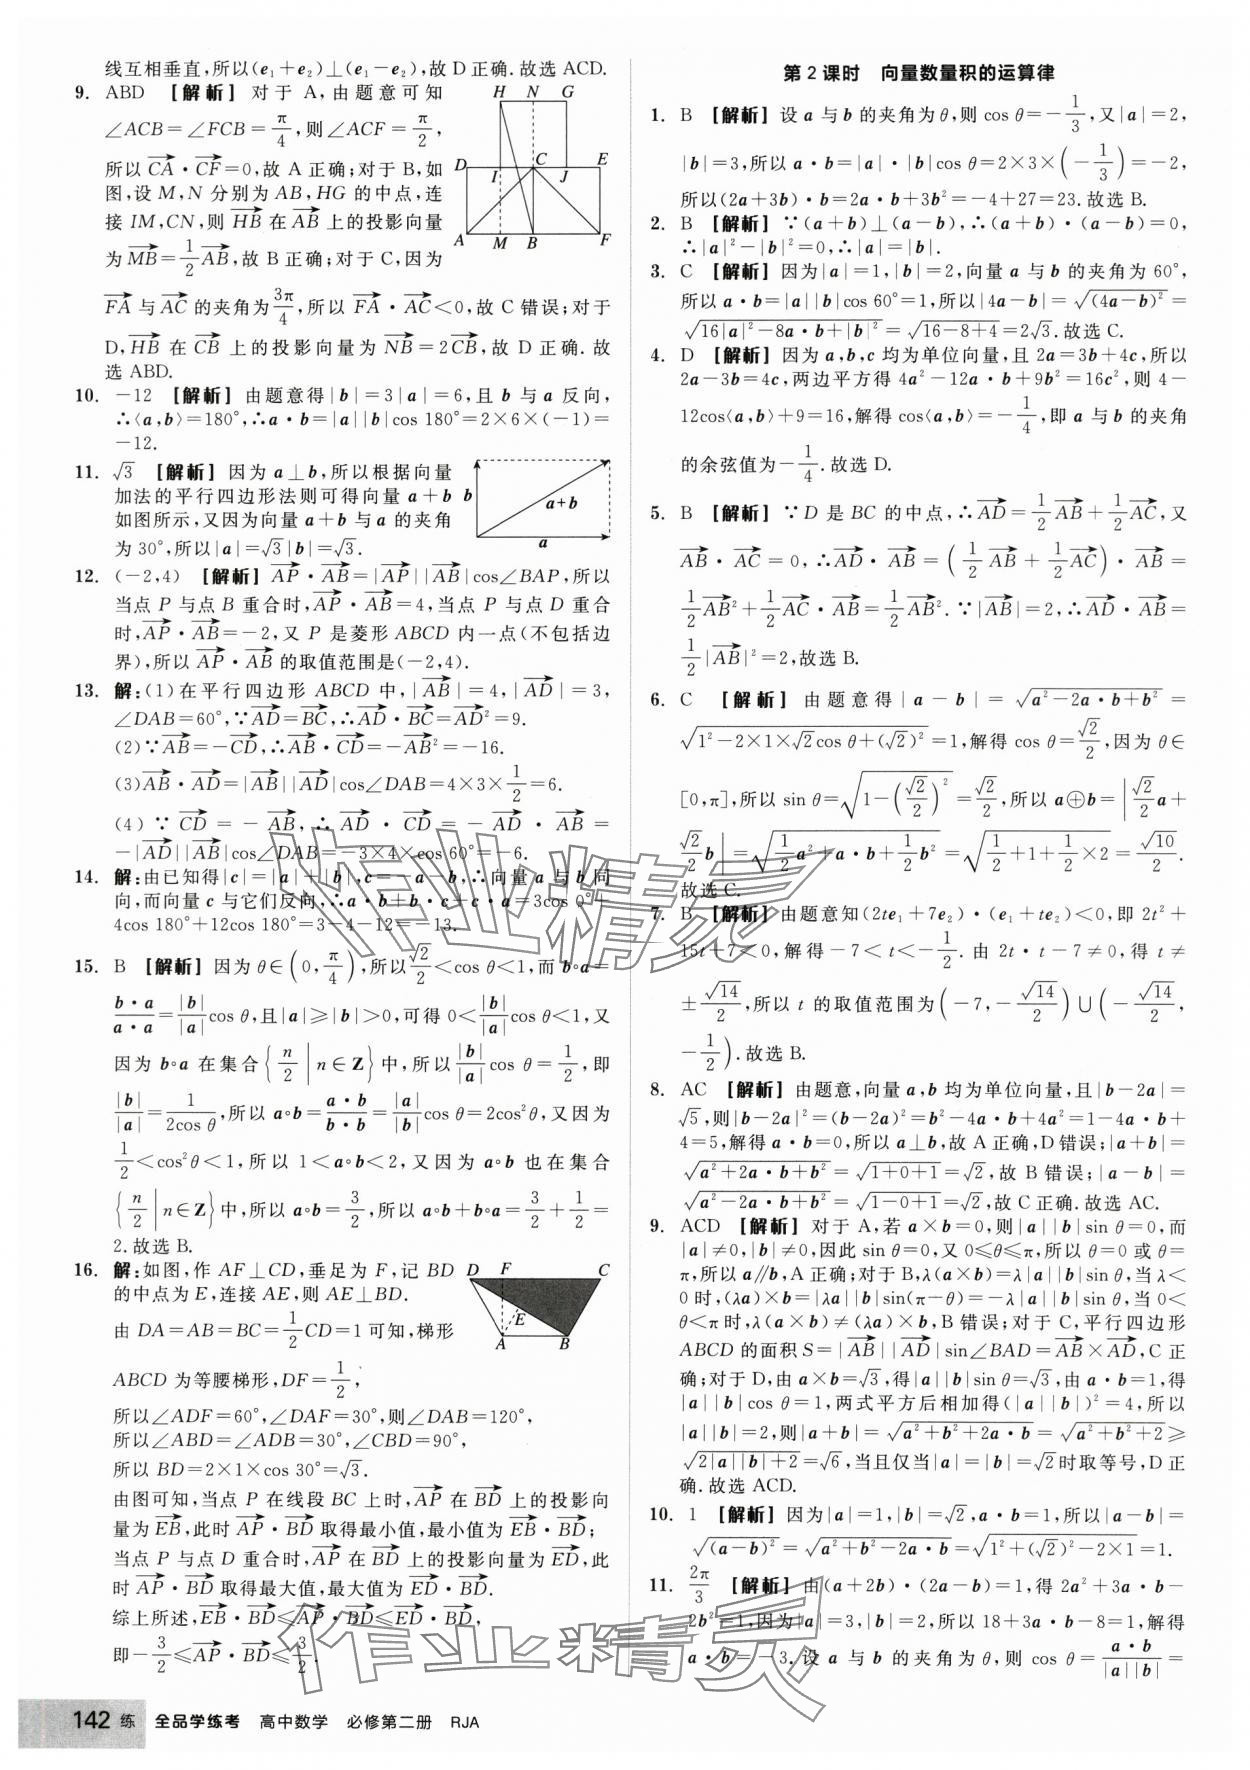 线互相垂直,所以(e₁+e₂)⊥(e₁-e₂),故 D 正确.故选 ACD.
9. ABD 【解析】 对于 A,由题意可知
∠ACB=∠FCB=π/4,则∠ACF=π/2,
所以 CA→·CF→=0,故 A 正确;对于 B,如
图,设 M,N 分别为 AB,HG 的中点,连
接 IM,CN,则 HB→ 在 AB→ 上的投影向量
为MB→=1/2AB→,故 B 正确;对于 C,因为
FA→ 与 AC→ 的夹角为3π/4,所以 FA→·AC→<0,故 C 错误;对于
D,HB→ 在 CB→ 上的投影向量为 NB→=2CB→,故 D 正确.故
选 ABD.
H N G
D I C J E
A M B F
10. -12 【解析】 由题意得|b|=3|a|=6,且 b 与 a 反向,
∴⟨a,b⟩=180°,∴a·b=|a||b|cos 180°=2×6×(-1)=
-12.
11. √3 【解析】 因为 a⊥b,所以根据向量
加法的平行四边形法则可得向量 a+b
如图所示,又因为向量 a+b 与 a 的夹角
为 30°,所以|a|=√3|b|=√3.
b a+b
a
12. (-2,4) 【解析】 AP→·AB→=|AP→||AB→|cos∠BAP,所以
当点 P 与点 B 重合时,AP→·AB→=4,当点 P 与点 D 重合
时,AP→·AB→=-2,又 P 是菱形 ABCD 内一点(不包括边
界),所以 AP→·AB→ 的取值范围是(-2,4).
13. 解:(1)在平行四边形 ABCD 中,|AB→|=4,|AD→|=3,
∠DAB=60°,∵AD→=BC→,∴AD→·BC→=AD→²=9.
(2)∵AB→=-CD→,∴AB→·CD→=-AB→²=-16.
(3)AB→·AD→=|AB→||AD→|cos∠DAB=4×3×1/2=6.
(4) ∵ CD→ = - AB→, ∴ AD→ · CD→ = - AD→ · AB→ =
-|AD→||AB→|cos∠DAB=-3×4×cos 60°=-6.
14. 解:由已知得|c|=|a|+|b|,c=-a-b,∴向量 a 与 b 同
向,而向量 c 与它们反向,∴a·b+b·c+c·a=3cos 0°+
4cos 180°+12cos 180°=3-4-12=-13.
15. B 【解析】 因为 θ∈(0,π/4),所以√2/2<cos θ<1,而 b∘a=
b·a/a·a=|b|/|a|cos θ,且|a|≥|b|>0,可得 0<|b|/|a|cos θ<1,又
因为 b∘a 在集合{n/2|n∈Z}中,所以|b|/|a|cos θ=1/2,即
|b|/|a|=1/2cos θ,所以 a∘b=a·b/b·b=|a|/|b|cos θ=2cos²θ,又因为
1/2<cos²θ<1,所以 1<a∘b<2,又因为 a∘b 也在集合
{n/2|n∈Z}中,所以 a∘b=3/2,所以 a∘b+b∘a=3/2+1/2=
2.故选 B.
16. 解:如图,作 AF⊥CD,垂足为 F,记 BD
的中点为 E,连接 AE,则 AE⊥BD.
由 DA=AB=BC=1/2CD=1 可知,梯形
ABCD 为等腰梯形,DF=1/2,
D F C
E
A B
所以∠ADF=60°,∠DAF=30°,则∠DAB=120°,
所以∠ABD=∠ADB=30°,∠CBD=90°,
所以 BD=2×1×cos 30°=√3.
由图可知,当点 P 在线段 BC 上时,AP→ 在 BD→ 上的投影向
量为 EB→,此时 AP→·BD→ 取得最小值,最小值为 EB→·BD→;
当点 P 与点 D 重合时,AP→ 在 BD→ 上的投影向量为 ED→,此
时 AP→·BD→ 取得最大值,最大值为 ED→·BD→.
综上所述,EB→·BD→≤AP→·BD→≤ED→·BD→,
即-3/2≤AP→·BD→≤3/2.
第 2 课时 向量数量积的运算律
1. B 【解析】 设 a 与 b 的夹角为 θ,则 cos θ=-1/3,又|a|=2,
|b|=3,所以 a·b=|a|·|b|cos θ=2×3×(-1/3)=-2,
所以(2a+3b)·b=2a·b+3b²=-4+27=23.故选 B.
2. B 【解析】 ∵(a+b)⊥(a-b),∴(a+b)·(a-b)=0,
∴|a|²-|b|²=0,∴|a|=|b|.
3. C 【解析】 因为|a|=1,|b|=2,向量 a 与 b 的夹角为 60°,
所以 a·b=|a||b|cos 60°=1,所以|4a-b|=√(4a-b)²=
√16|a|²-8a·b+|b|²=√16-8+4=2√3.故选 C.
4. D 【解析】 因为 a,b,c 均为单位向量,且 2a=3b+4c,所以
2a-3b=4c,两边平方得 4a²-12a·b+9b²=16c²,则 4-
12cos⟨a,b⟩+9=16,解得 cos⟨a,b⟩=-1/4,即 a 与 b 的夹角
的余弦值为-1/4.故选 D.
5. B 【解析】 ∵D 是 BC 的中点,∴AD→=1/2AB→+1/2AC→,又
AB→·AC→=0,∴AD→·AB→=(1/2AB→+1/2AC→)·AB→=
1/2AB→²+1/2AC→·AB→=1/2AB→².∵|AB→|=2,∴AD→·AB→=
1/2|AB→|²=2,故选 B.
6. C 【解析】 由题意得|a-b|=√a²-2a·b+b²=
√1²-2×1×√2cos θ+(√2)²=1,解得 cos θ=√2/2,因为 θ∈
[0,π],所以 sin θ=√1-(√2/2)²=√2/2,所以 a⊕b=|√2/2a+
√2/2b|=√1/2a²+a·b+1/2b²=√1/2+1+1/2×2=√10/2.
故选 C.
7. B 【解析】 由题意知(2te₁+7e₂)·(e₁+te₂)<0,即 2t²+
15t+7<0,解得-7<t<-1/2.由 2t·t-7≠0,得 t≠
±√14/2,所以 t 的取值范围为(-7,-√14/2)∪(-√14/2,
-1/2).故选 B.
8. AC 【解析】 由题意,向量 a,b 均为单位向量,且|b-2a|=
√5,则|b-2a|²=(b-2a)²=b²-4a·b+4a²=1-4a·b+
4=5,解得 a·b=0,所以 a⊥b,故 A 正确,D 错误;|a+b|=
√a²+2a·b+b²=√1+0+1=√2,故 B 错误;|a-b|=
√a²-2a·b+b²=√1-0+1=√2,故 C 正确.故选 AC.
9. ACD 【解析】 对于 A,若 a×b=0,则|a||b|sin θ=0,而
|a|≠0,|b|≠0,因此 sin θ=0,又 0≤θ≤π,所以 θ=0 或 θ=
π,所以 a∥b,A 正确;对于 B,λ(a×b)=λ|a||b|sin θ,当 λ<
0 时,(λa)×b=|λa||b|sin(π-θ)=-λ|a||b|sin θ,当 0<
θ<π 时,λ(a×b)≠(λa)×b,B 错误;对于 C,平行四边形
ABCD 的面积 S=|AB→||AD→|sin∠BAD=AB→×AD→,C 正
确;对于 D,由 a×b=√3,得|a||b|sin θ=√3,由 a·b=1,得
|a||b|cos θ=1,两式平方后相加得(|a||b|)²=4,所以
|a||b|=2,则|a+b|=√a²+b²+2a·b=√a²+b²+2≥
√2|a||b|+2=√6,当且仅当|a|=|b|=√2时取等号,D 正
确.故选 ACD.
10. 1 【解析】 因为|a|=1,|b|=√2,a·b=1,所以|a-b|=
√(a-b)²=√a²+b²-2a·b=√1²+(√2)²-2×1=1.
11. 2π/3 【解析】 由(a+2b)·(2a-b)=1,得 2a²+3a·b-
2b²=1,因为|a|=3,|b|=2,所以 18+3a·b-8=1,解得
a·b=-3.设 a 与 b 的夹角为 θ,则 cos θ=a·b/|a||b|=
作业精灵
作业精灵
142 练 全品学练考 高中数学 必修第二册 RJA